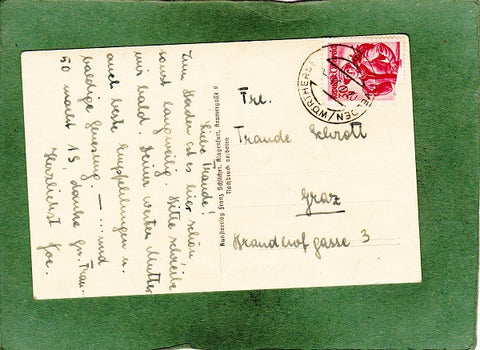 Liebe Traude!
Zum Baden ist es hier schön
sonst langweilig. Bitte schreibe
mir bald. Deiner werten Mutter
auch beste Empfehlungen u.
baldige Genesung. — ... und
50 macht 15, danke
Herzlichst
Kunstverlag Franz Schilcher, Klagenfurt,
Nachdruck verboten
VELDEN/WÖRTHERSEE
Frl.
Traude Schrott
Graz
Brandhofgasse 3